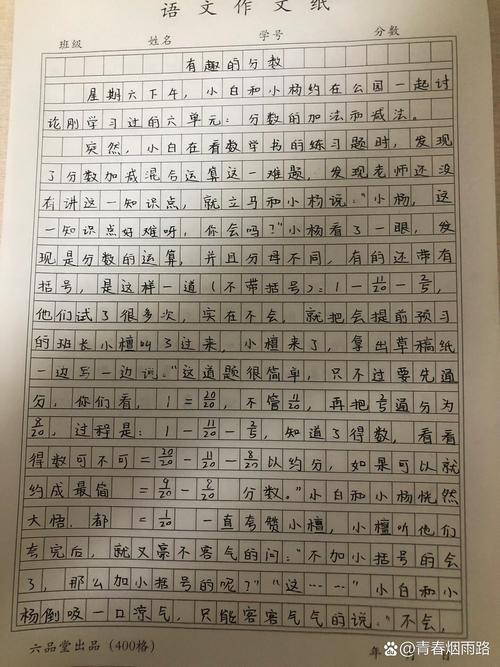 语文作文纸
班级 姓名 学号 分数
有趣的分数
星期六下午,小白和小杨约在公园一起讨
论刚学习过的六单元:分数的加法和减法。
突然,小白在看数学书的练习题时,发现
了分数加减混合运算这一难题,发现老师还没
有讲这一知识点,就立马和小杨说:"小杨,这
一知识点好难呀,你会吗?"小杨看了一眼,发
现是分数的运算,并且分母不同,有的还带有
括号,是这样一道(不带括号):1-11/20-2/5,
他们试了很多次,实在不会,就把会提前预习
的班长小檀叫了过来,小檀来了,拿出草稿纸
一边写一边说:"这道题很简单,只不过要先通
分,你们看,1=20/20,不管11/20,再把2/5通分为
8/20,过程是:1-11/20-2/5,知道了得数,看看
得数可不可=20/20-11/20-8/20以约分,如果可以就
约成最简=9/20-8/20分数。"小白和小杨恍然
大悟,都=1/20一直夸赞小檀,小檀听他们
夸完后,就又毫不客气的问:"不加小括号的会
了,那么加小括号的呢?""这……"小白和小
杨倒吸一口凉气,只能客客气气的说:"不会,
六品堂出品(400格) 年 日
@青春烟雨路